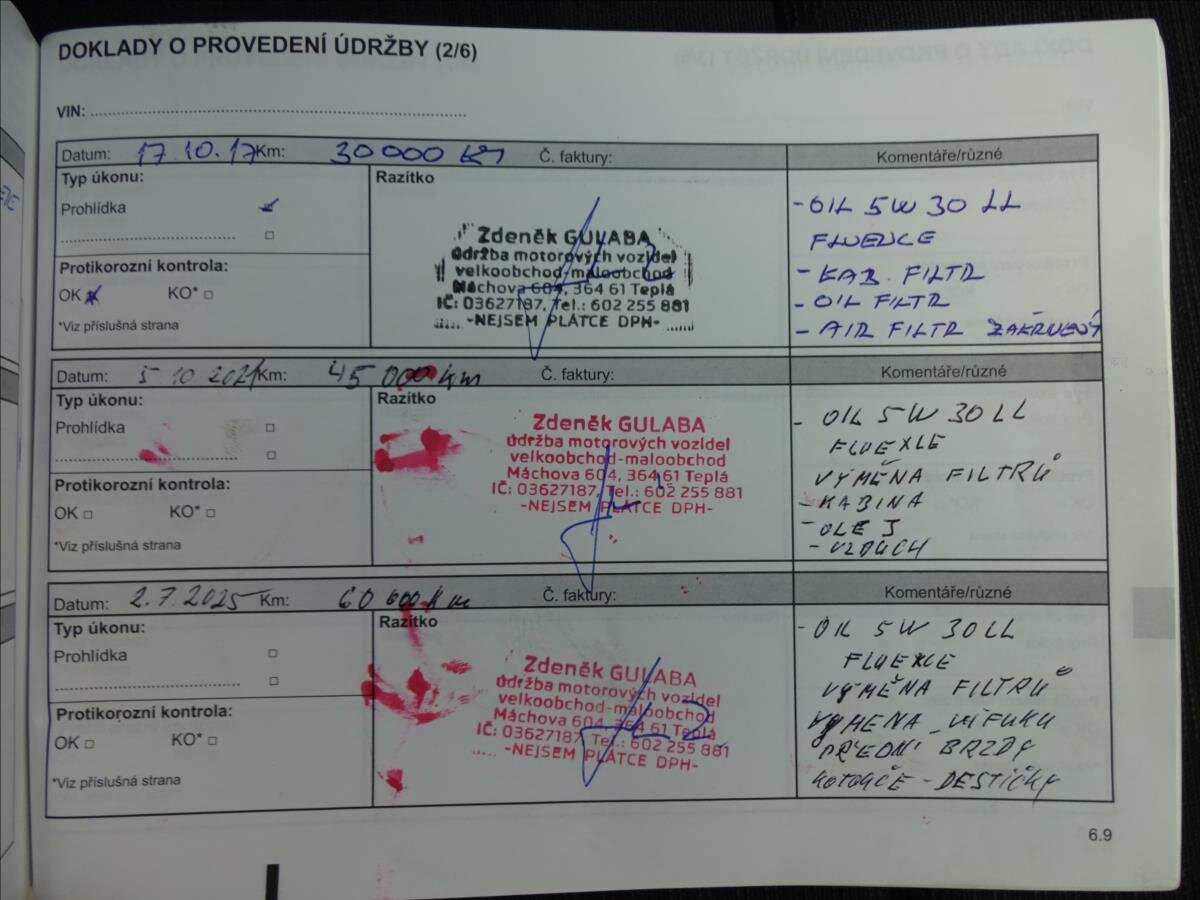 DOKLADY O PROVEDENÍ ÚDRŽBY (2/6)
VIN:
Datum: 17.10.17 Km: 30 000 km Č. faktury: Komentáře/různé
Typ úkonu:
Razítko
Prohlídka
Protikorozní kontrola:
OK KO*
*Viz příslušná strana
Zdeněk GULABA
údržba motorových vozidel
velkoobchod-maloobchod
Máchova 604, 364 61 Teplá
IČ: 03627187, Tel.: 602 255 881
-NEJSEM PLÁTCE DPH-
- OIL 5W 30 LL
FLUENCE
- KAB. FILTR
- OIL FILTR
- AIR FILTR
Datum: 5.10.2021 Km: 45 000 km Č. faktury: Komentáře/různé
Typ úkonu:
Razítko
Prohlídka
Protikorozní kontrola:
OK KO*
*Viz příslušná strana
Zdeněk GULABA
údržba motorových vozidel
velkoobchod-maloobchod
Máchova 604, 364 61 Teplá
IČ: 03627187, Tel.: 602 255 881
-NEJSEM PLÁTCE DPH-
- OIL 5W 30 LL
VÝMĚNA FILTRŮ
- KABINA
- OLEJ
- VZDUCH
Datum: 2.7.2025 Km: 60 600 km Č. faktury: Komentáře/různé
Typ úkonu:
Razítko
Prohlídka
Protikorozní kontrola:
OK KO*
*Viz příslušná strana
Zdeněk GULABA
údržba motorových vozidel
velkoobchod-maloobchod
Máchova 604, 364 61 Teplá
IČ: 03627187, Tel.: 602 255 881
-NEJSEM PLÁTCE DPH-
- OIL 5W 30 LL
VÝMĚNA FILTRŮ
VÝMĚNA VÍFUKU
PŘEDNÍ BRZDY
KOTOUČE - DESTIČKY
6.9